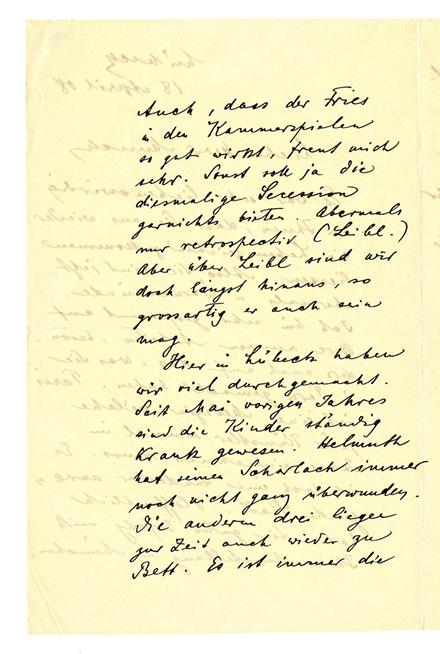 Auch, dass der Fries
in den Kammerspielen
so gut wirkt, freut mich
sehr. Sonst soll ja die
diesmalige Secession
garnichts bieten. Abermals
nur retrospectiv (Leibl.)
Aber über Leibl sind wir
doch längst hinaus, so
grossartig er auch sein
mag.
Hier in Lübeck haben
wir viel durchgemacht.
Seit Mai vorigen Jahres
sind die Kinder ständig
Krank gewesen. Helmuth
hat seinen Scharlach immer
noch nicht ganz überwunden.
Die anderen drei liegen
zur Zeit auch wieder zu
Bett. Es ist immer die